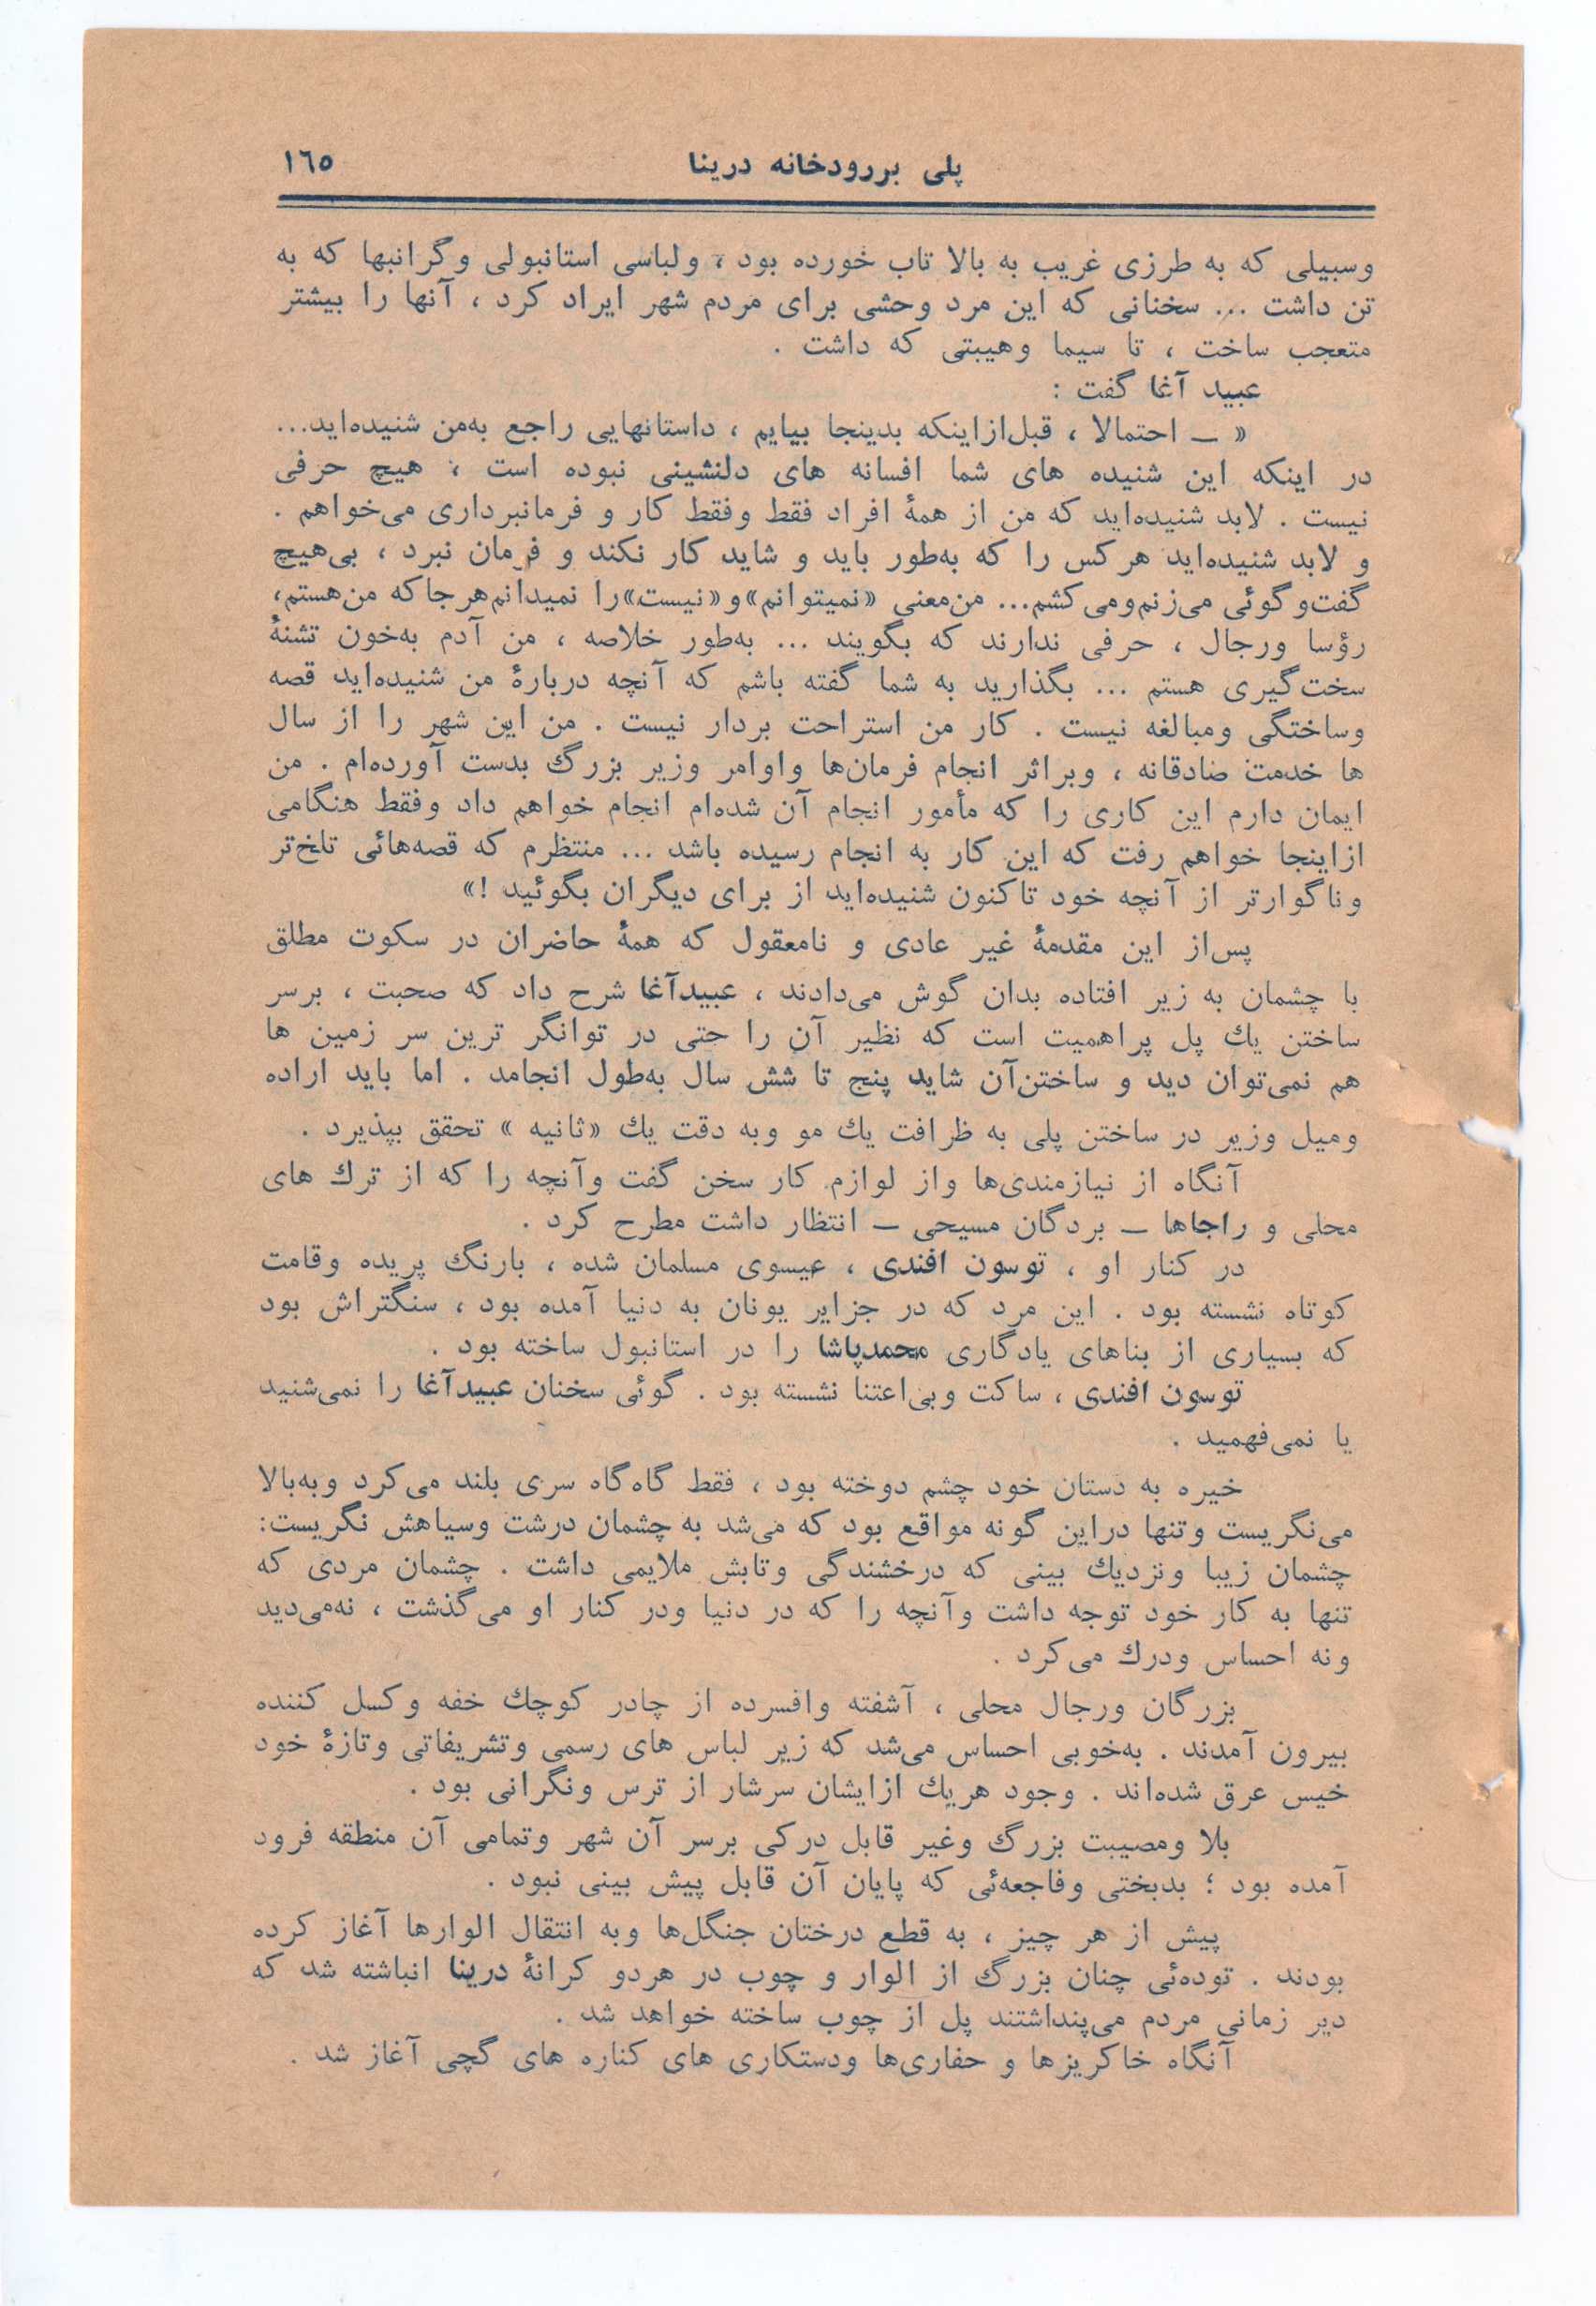 پلی بررودخانه درینا ١٦٥
وسبیلی که به طرزی غریب به بالا تاب خورده بود ، ولباسی استانبولی وگرانبها که به
تن داشت ... سخنانی که این مرد وحشی برای مردم شهر ایراد کرد ، آنها را بیشتر
متعجب ساخت ، تا سیما وهیبتی که داشت .
عبید آغا گفت :
« ــ احتمالا ، قبل‌ازاینکه بدینجا بیایم ، داستانهایی راجع به‌من شنیده‌اید...
در اینکه این شنیده های شما افسانه های دلنشینی نبوده است ، هیچ حرفی
نیست . لابد شنیده‌اید که من از همهٔ افراد فقط وفقط کار و فرمانبرداری می‌خواهم .
و لابد شنیده‌اید هرکس را که به‌طور باید و شاید کار نکند و فرمان نبرد ، بی‌هیچ
گفت‌وگوئی می‌زنم‌ومی‌کشم... من‌معنی «نمیتوانم»و«نیست»را نمیدانم‌هرجاکه من‌هستم،
رؤسا ورجال ، حرفی ندارند که بگویند ... به‌طور خلاصه ، من آدم به‌خون تشنهٔ
سخت‌گیری هستم ... بگذارید به شما گفته باشم که آنچه دربارهٔ من شنیده‌اید قصه
وساختگی ومبالغه نیست . کار من استراحت بردار نیست . من این شهر را از سال
ها خدمت صادقانه ، وبراثر انجام فرمان‌ها واوامر وزیر بزرگ بدست آورده‌ام . من
ایمان دارم این کاری را که مأمور انجام آن شده‌ام انجام خواهم داد وفقط هنگامی
ازاینجا خواهم رفت که این کار به انجام رسیده باشد ... منتظرم که قصه‌هائی تلخ‌تر
وناگوارتر از آنچه خود تاکنون شنیده‌اید از برای دیگران بگوئید !»
پس‌از این مقدمهٔ غیر عادی و نامعقول که همهٔ حاضران در سکوت مطلق
با چشمان به زیر افتاده بدان گوش می‌دادند ، عبیدآغا شرح داد که صحبت ، برسر
ساختن یك پل پراهمیت است که نظیر آن را حتی در توانگر ترین سر زمین ها
هم نمی‌توان دید و ساختن‌آن شاید پنج تا شش سال به‌طول انجامد . اما باید اراده
ومیل وزیر در ساختن پلی به ظرافت یك مو وبه دقت یك «ثانیه » تحقق بپذیرد .
آنگاه از نیازمندی‌ها واز لوازم کار سخن گفت وآنچه را که از ترك های
محلی و راجاها ــ بردگان مسیحی ــ انتظار داشت مطرح کرد .
در کنار او ، توسون افندی ، عیسوی مسلمان شده ، بارنگ پریده وقامت
کوتاه نشسته بود . این مرد که در جزایر یونان به دنیا آمده بود ، سنگتراش بود
که بسیاری از بناهای یادگاری محمدپاشا را در استانبول ساخته بود .
توسون افندی ، ساکت وبی‌اعتنا نشسته بود . گوئی سخنان عبیدآغا را نمی‌شنید
یا نمی‌فهمید .
خیره به دستان خود چشم دوخته بود ، فقط گاه‌گاه سری بلند می‌کرد وبه‌بالا
می‌نگریست وتنها دراین گونه مواقع بود که می‌شد به چشمان درشت وسیاهش نگریست:
چشمان زیبا ونزدیك بینی که درخشندگی وتابش ملایمی داشت . چشمان مردی که
تنها به کار خود توجه داشت وآنچه را که در دنیا ودر کنار او می‌گذشت ، نه‌می‌دید
ونه احساس ودرك می‌کرد .
بزرگان ورجال محلی ، آشفته وافسرده از چادر کوچك خفه وکسل کننده
بیرون آمدند . به‌خوبی احساس می‌شد که زیر لباس های رسمی وتشریفاتی وتازهٔ خود
خیس عرق شده‌اند . وجود هریك ازایشان سرشار از ترس ونگرانی بود .
بلا ومصیبت بزرگ وغیر قابل درکی برسر آن شهر وتمامی آن منطقه فرود
آمده بود ؛ بدبختی وفاجعه‌ئی که پایان آن قابل پیش بینی نبود .
پیش از هر چیز ، به قطع درختان جنگل‌ها وبه انتقال الوارها آغاز کرده
بودند . توده‌ئی چنان بزرگ از الوار و چوب در هردو کرانهٔ درینا انباشته شد که
دیر زمانی مردم می‌پنداشتند پل از چوب ساخته خواهد شد .
آنگاه خاکریزها و حفاری‌ها ودستکاری های کناره های گچی آغاز شد .